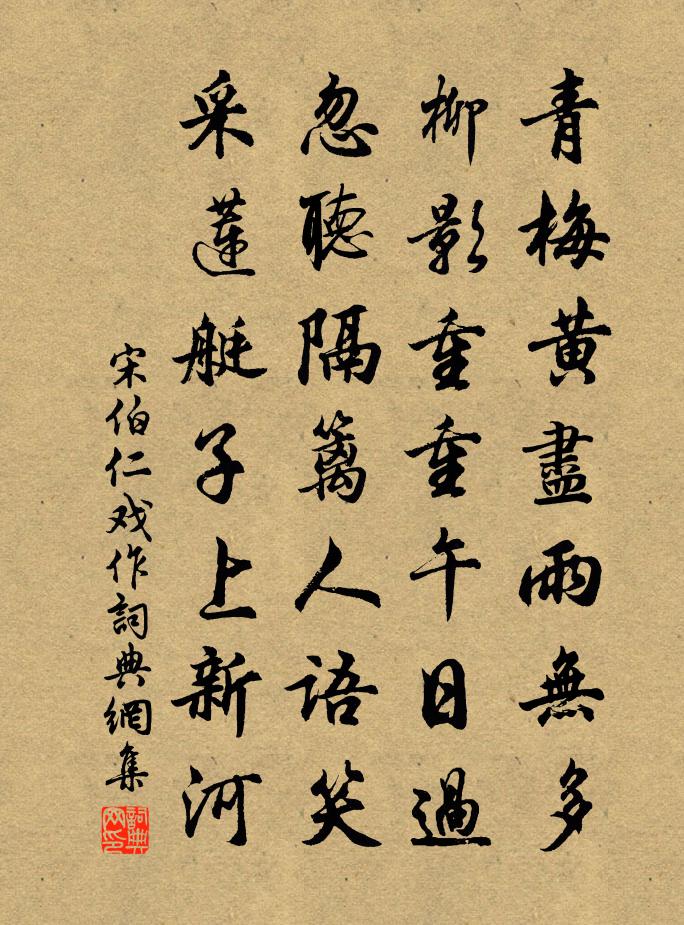 青梅黄盡雨無多
柳影重重午日過
忽聽隔籬人語笑
采蓮艇子上新河
宋伯仁戏作詞典網集
詞典網印